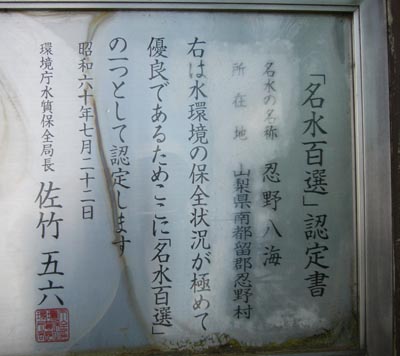 「名水百選」認定書
名水の名称 忍野八海
所在地 山梨県南都留郡忍野村
右は水環境の保全状況が極めて
優良であるためここに「名水百選」
の一つとして認定します
昭和六十年七月二十二日
環境庁水質保全局長 佐竹五六